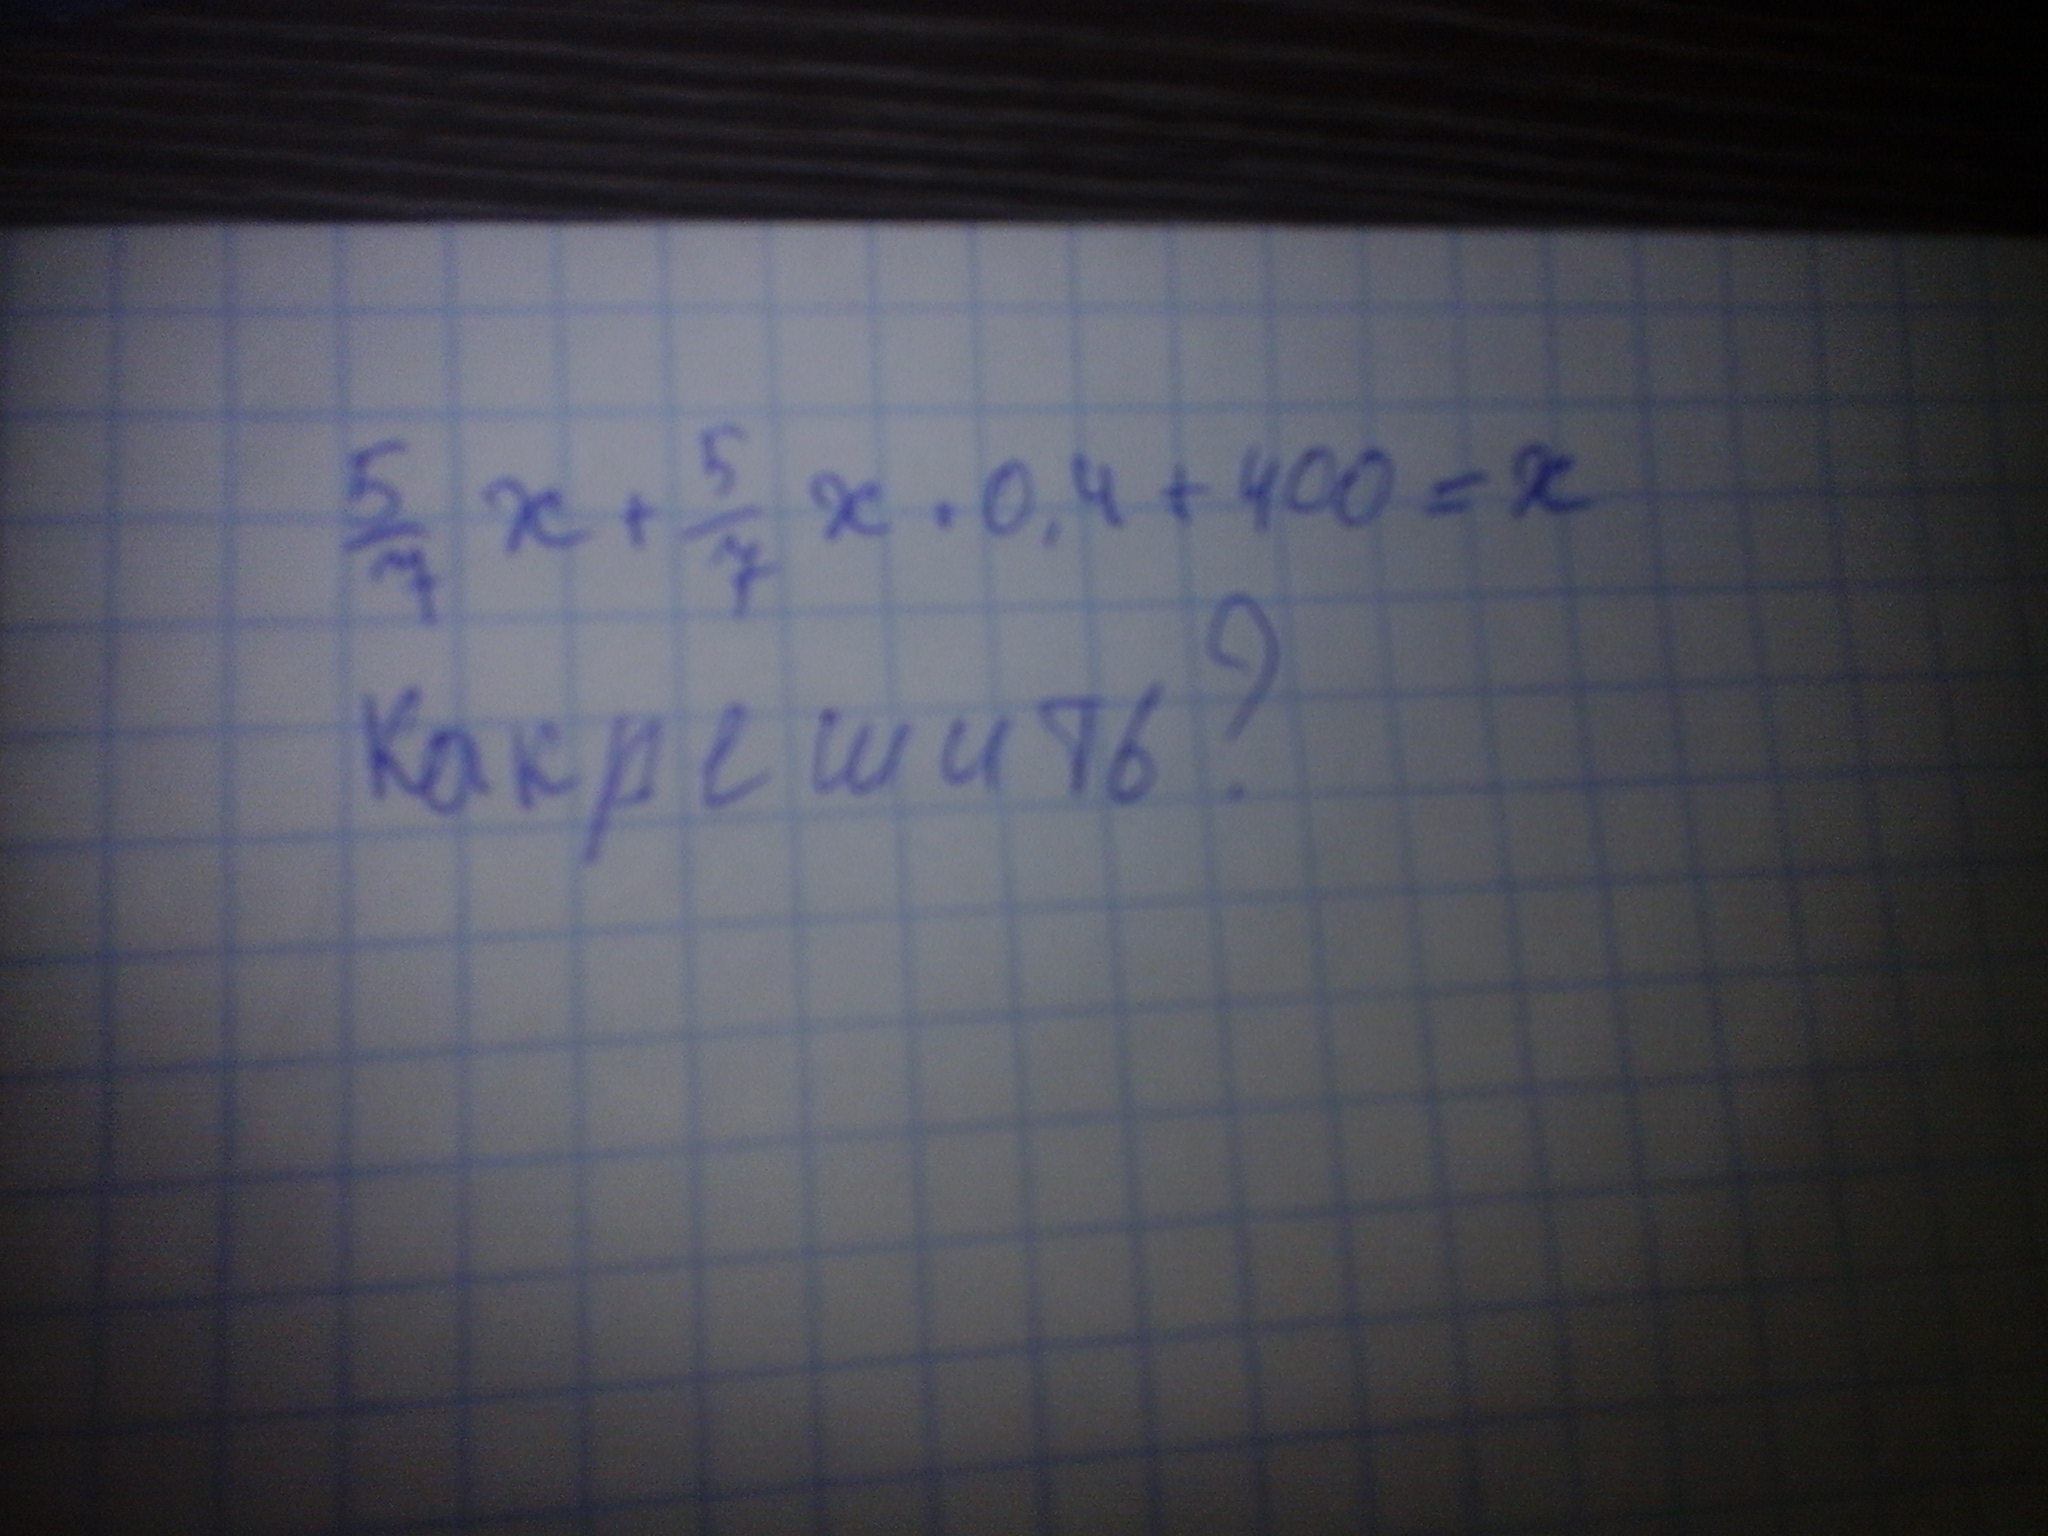 5/7 x + 5/7 x · 0,4 + 400 = x
Как решить?